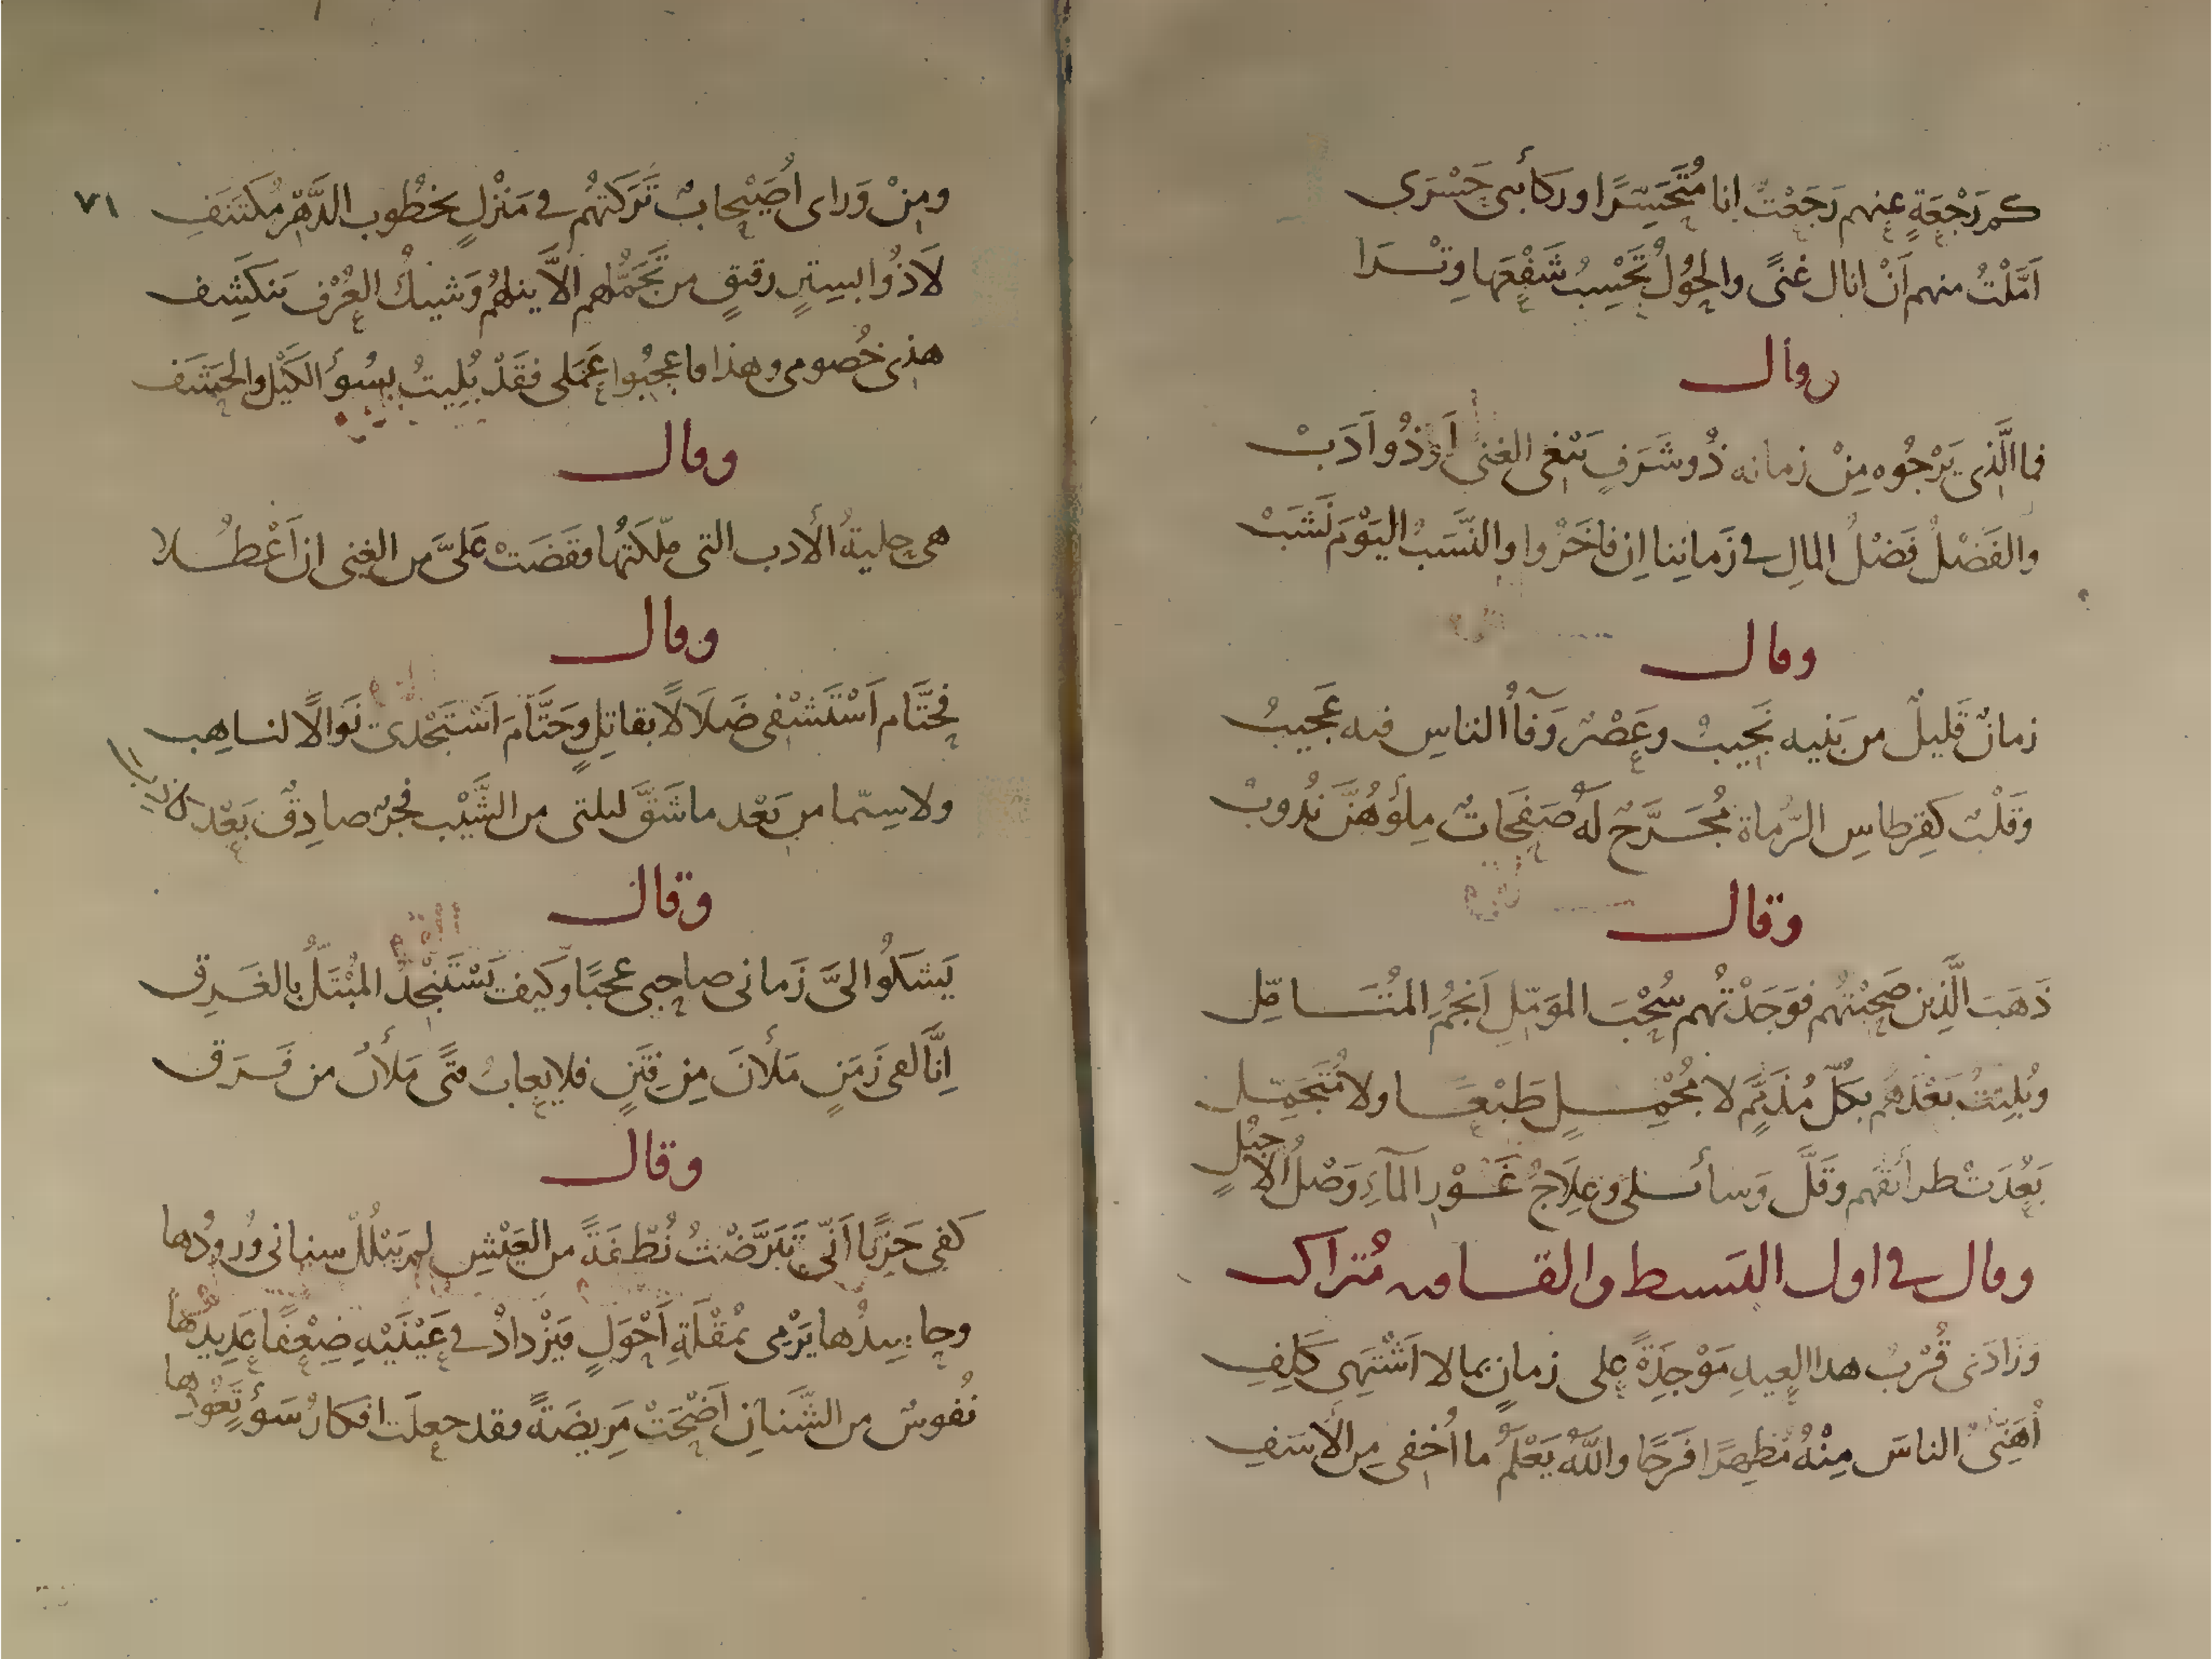 كم رَجْعَةٍ عنهم رَجَعْتُ انا مُتَحَسِّرًا وركائبى حَسْرَى
اَمَّلْتُ منهم اَنْ انال غنًى والحُوْلُ تَحْسِبُ شَفْعَها وِتْرا
وقال
فما الَّذى يَرْجُوه مِنْ زمانه ذُو شَرَفٍ يَبْغى الغنى اَوْ ذُو اَدَبْ
والفَضْلُ فَضْلُ المالِ فى زَمانِنا اِن فاخَرُوا والنَّسَبُ اليَوْمَ نَشَبْ
وقال
زمانٌ قَليلٌ من بَنيه نَجيبُ وعَصْرٌ وَفآءُ الناسِ فيه عَجيبُ
وَقَلْبٌ كَقِرطاسِ الرُّماة مُجَرَّحٌ لَهُ صَفَحَاتٌ مِلْؤُهُنَّ نُدُوبُ
وقال
ذَهَبَ الَّذِين صَحِبْتُهُم فوَجَدْتُهم سُحْبَ المؤمّلِ اَنْجُمَ المُتَأمِّل
وبُلِيتُ بَعْدَهُم بكُلّ مُذَمَّمٍ لا مُجْمِلٍ طَبْعًا ولا مُتَجَمِّل
بَعُدَتْ طرائقهم وقَلَّ وَسائلى وعِلَاجُ غَوْرِ المآءِ وَصْلُ الاحْبُلِ
وقال فى اول البسيط والقافيه مُتراكب
وَزَادَنى قُرْبُ هذا العِيدِ مَوْجِدَةً على زمانٍ بما لا اَشْتَهى كَلِفِ
اُهَنّئُ الناسَ مِنْهُ مُظهِرًا فَرَحًا واللهُ يَعْلَمُ ما اُخفى مِن الأسَفِ
٧١
ومِنْ وَراى اُصَيْحابٌ تَرَكتهُم فى مَنْزلٍ بخُطُوب الدَّهْرِ مُكتَنَفِ
لَاذُوا بسِتْرٍ رقيقٍ من تَجَمُّلهم اِلَّا يَنلهُمْ وَشيكُ العُرْف يَنكَشِف
هذى خُصومى وهذا ما عجبُوا عَمَلى فقَدْ بُليتُ بسُوءِ الكَيْل والحَشَف
وقال
هى حِليةُ الأدب التى مَلَكتها فقَضَتْ عَلىَّ من الغِنى ان اَعْطُلا
وقال
فحَتَّام اَسْتَشْفى ضَلَالًا بقاتِلٍ وحَتَّام اَسْتَجْدى نَوالًا لناهِب
ولا سِيّما من بَعْد ما شَقَّ ليلتى من الشَّيْب فجرٌ صادِقٌ بَعْد كاذِب
وقال
يَشكُوا الىَّ زَمانى صاحبى عجبًا وكيف يَسْتَنْجدُ المُبْتَلُّ بالغَرِق
اِنَّا لفى زَمَنٍ مَلأنَ مِن فِتَنٍ فلا يعابُ فتًى مَلأنُ من فَرَق
وقال
كفى حَزنًا اَنّى تَبَرَّضْتُ نُطْفَةً من العَيْشِ لم يَبْلُلْ سِنانى وُرودُها
يَرْمى بمُقْلَةِ اَحْوَلٍ فيَزْدادُ فى عَيْنَيْهِ ضِعْفًا عَدِيدُها
نُفوسٌ من الشَّنَانِ اَضْحَتْ مَرِيضَةً وقد جعلَت افكارُ سَوْءٍ تَعُودُها